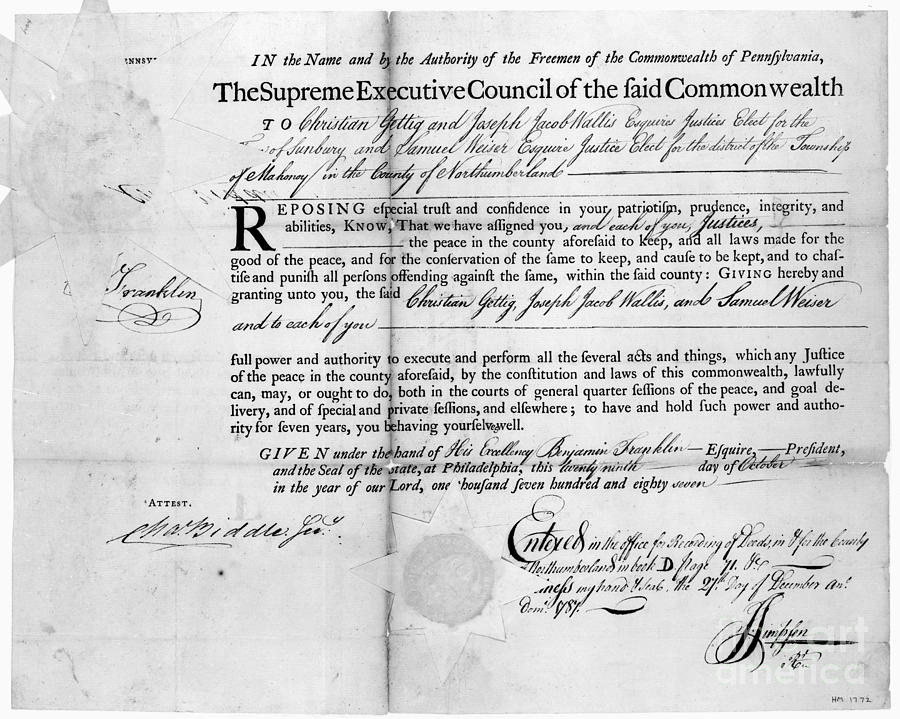 ENNSY
IN the Name and by the Authority of the Freemen of the Commonwealth of Pennſylvania,
The Supreme Executive Council of the ſaid Commonwealth
TO Christian Gettig and Joseph Jacob Wallis Esquires Justices Elect for the
of Sunbury and Samuel Weiser Esquire Justice Elect for the district of the Township
of Mahonoy in the County of Northumberland
REPOSING eſpecial truſt and confidence in your patriotiſm, prudence, integrity, and
abilities, KNOW, That we have aſſigned you, and each of you, Justices,
the peace in the county aforeſaid to keep, and all laws made for the
good of the peace, and for the conſervation of the ſame to keep, and cauſe to be kept, and to chaſ-
tiſe and puniſh all perſons offending againſt the ſame, within the ſaid county: GIVING hereby and
granting unto you, the ſaid Christian Gettig, Joseph Jacob Wallis, and Samuel Weiser
and to each of you
Franklin
full power and authority to execute and perform all the ſeveral acts and things, which any Juſtice
of the peace in the county aforeſaid, by the conſtitution and laws of this commonwealth, lawfully
can, may, or ought to do, both in the courts of general quarter ſeſſions of the peace, and goal de-
livery, and of ſpecial and private ſeſſions, and elſewhere; to have and hold ſuch power and autho-
rity for ſeven years, you behaving yourſelves well.
GIVEN under the hand of His Excellency Benjamin Franklin — Eſquire, — Preſident,
and the Seal of the ſtate, at Philadelphia, this twenty ninth day of October
in the year of our Lord, one thouſand ſeven hundred and eighty seven
ATTEST.
Cha. Biddle Secy.
Entered in the office for Recording of Deeds, in & for the County
Northumberland in book D. page 71. &c
my hand & Seal the 27th Day of December an.
Dom. 1787.
J Simpson
fine art
america
HM 1772